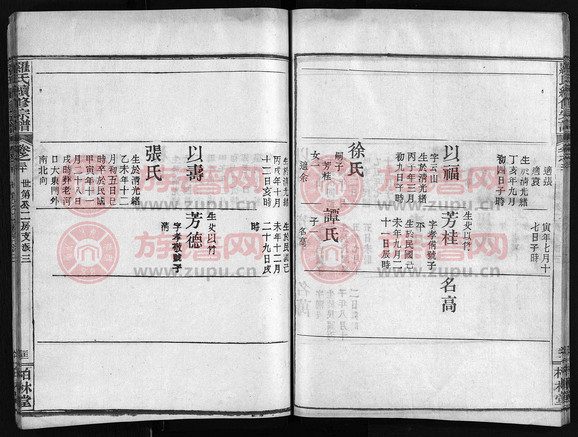 適張
適袁
生於清光緒
丁亥年九月
初四日子時
寅年七月十
七日子時
以福
字云山
生於清光緒
丙子年三月
初九日子時
徐氏
嗣子
芳桂
女一
適余
生父以竹
芳桂
字孝 號子
平
生於民國己
未年九月二
十一日辰時
譚氏
子
名高
名高
以壽
生於清光緒
丙戌年十二月
十二日亥時
張氏
生於清光緒
乙未年十一
月初五日子
時卒於民國
甲寅年十一
月二十八日
戌時葬老河
口大東門外
南北向
生父以竹
芳德
字孝 號子
清
生於民國己
未年十二月
二十九日戌
時
羅氏續修宗譜
卷之
世第 公二房支派三
柏林堂
族譜网
www.zupu.cn